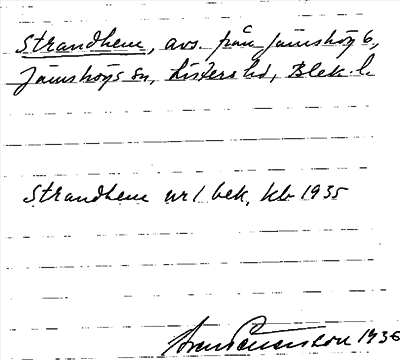 Strandhem, avs. från Jämshög 6,
Jämshögs sn, Listers hd, Blek. l.
Strandhem nr 1 bek, kb 1935
1936